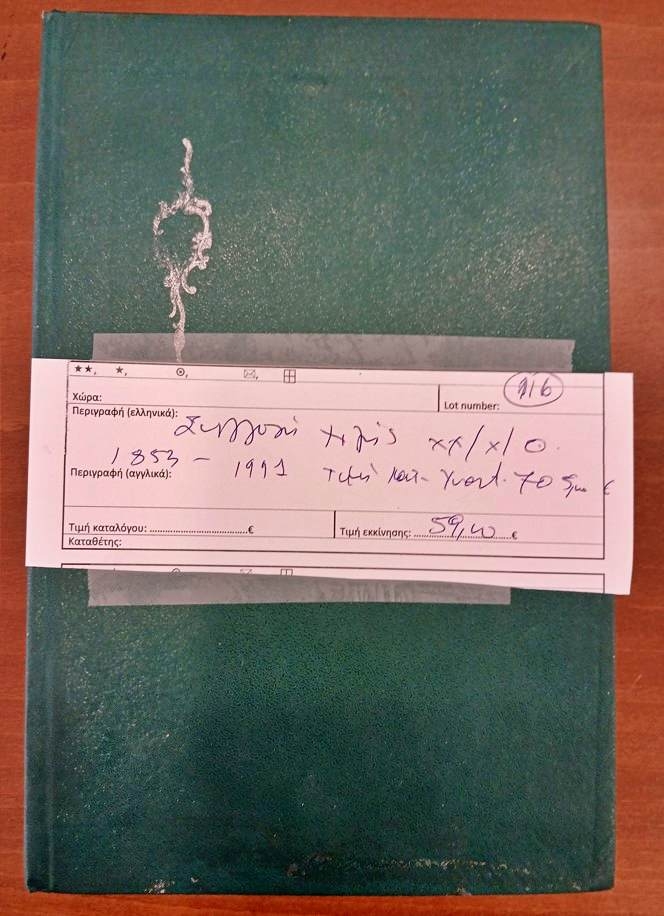 ★★, ★, ⊙, ✉, ⊞
Χώρα:
Lot number: 116
Περιγραφή (ελληνικά):
Συλλογή Χιλής xx/x/O.
1853 - 1991 τιμή κατ.
Περιγραφή (αγγλικά):
Τιμή καταλόγου: ..............................€
Τιμή εκκίνησης: 59,00 €
Καταθέτης: